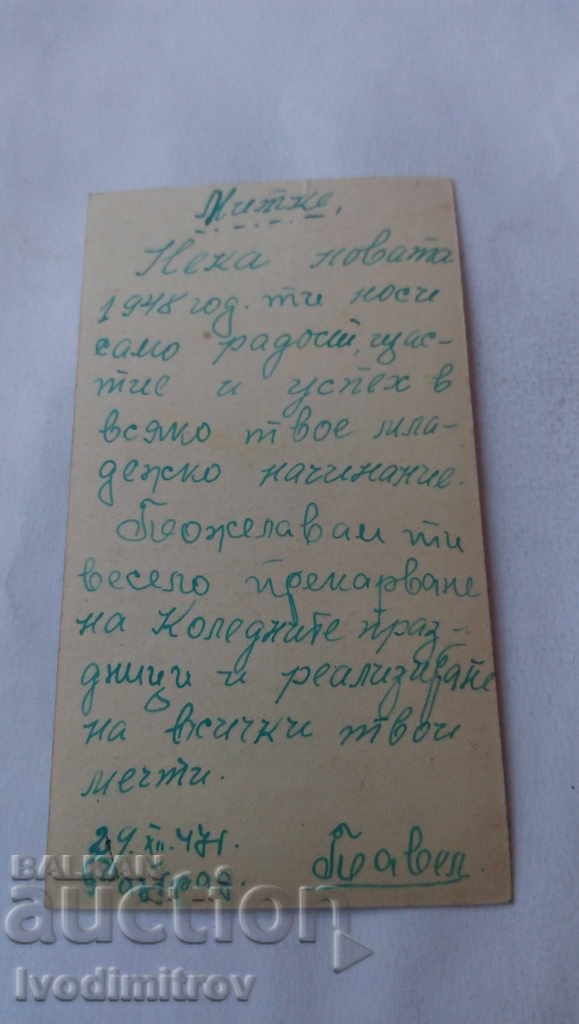 Митке,
Нека новата
1948 год. ти носи
само радост, щас-
тие и успех в
всяко твое мла-
дежко начинание.
Пожелавам ти
весело прекарване
на Коледните праз-
дници и реализиране
на всички твои
мечти.
24.XII.47г.
Павел.
BALKAN
auction
Ivodimitrov